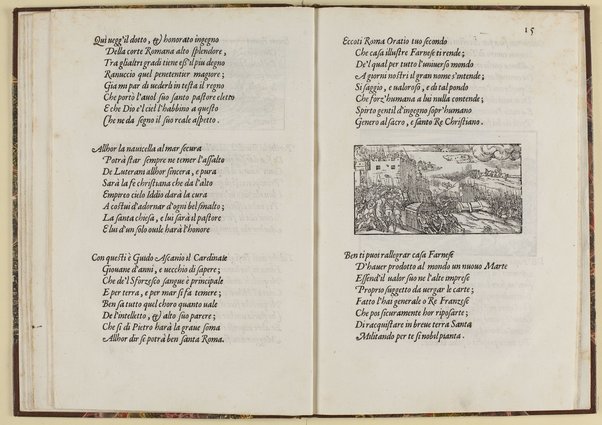 Qui uegg'il dotto, &) honorato ingegno
Della corte Romana alto splendore,
Tra gl'altri gradi tiene eßil piu degno
Ranuccio quel penetentier magiore;
Gia mi par di uederli in testa il regno
Che portò l'auol suo santo pastore eletto
E che Dio e'l ciel l'habbino a questo
Che ne da segno il suo reale aspetto.
Allhor la nauicella al mar secura
Potrà star sempre ne temer l'assalto
De Luterani allhor sincera, e pura
Sarà la fe christiana che da l'alto
Empireo cielo Iddio darà la cura
A costui d'adornar d'ogni bel smalto;
La santa chiesa, e lui sarà il pastore
E lui d'un solo ouile harà l'honore
Con questi è Guido Ascanio il Cardinale
Giouane d'anni, e uecchio di sapere;
Che de'l Sforzesco sangue è principale
E per terra, e per mar si fa temere;
Ben sa tutto quel choro quanto uale
De l'intelletto, &) alto suo parere;
Che se di Pietro harà la graue soma
Allhor dir se potrà ben santa Roma.
15
Eccoti Roma Oratio tuo secondo
Che casa illustre Farnese ti rende;
De'l qual per tutto l'uniuerso mondo
A giorni nostri il gran nome s'intende;
Si saggio, e ualoroso, e di tal pondo
Che forz'humana a lui nulla contende;
Spirto gentil d'ingegno sopr'humano
Genero al sacro, e santo Re Christiano.
Ben ti puoi rallegrar casa Farnese
D'hauer prodotto al mondo un nuouo Marte
Essend'il ualor suo ne l'alte imprese
Proprio suggetto da uergar le carte;
Fatto l'hai generale o Re Franzese
Che poi sicuramente hor riposarte;
Di racquistare in breue terra Santa
Militando per te si nobil pianta.